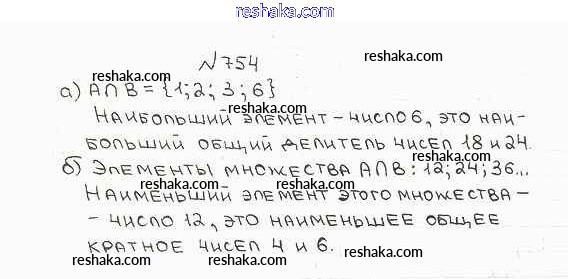 reshaka.com
№754 reshaka.com
reshaka.com
а) A∩B = {1; 2; 3; 6}
reshaka.com
Наибольший элемент – число 6, это наи-
больший общий делитель чисел 18 и 24.
reshaka.com
б) Элементы множества A∩B: 12; 24; 36...
reshaka.com reshaka.com
Наименьший элемент этого множества –
– число 12, это наименьшее общее
reshaka.com
кратное чисел 4 и 6.
reshaka.com reshaka.com